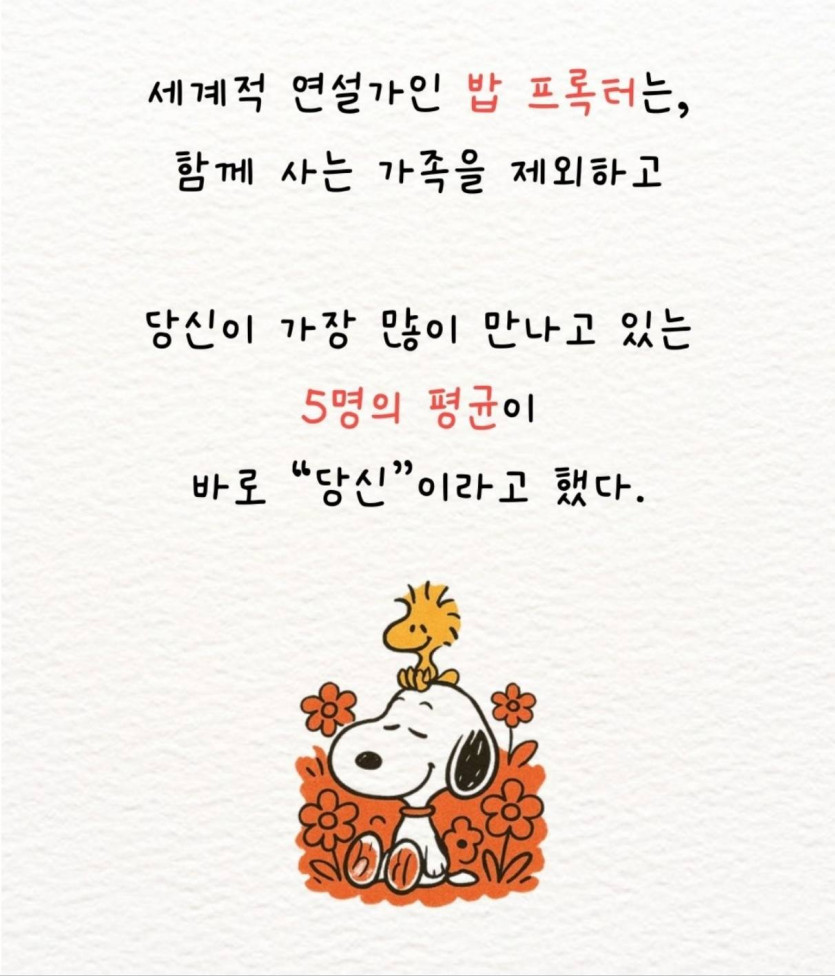 세계적 연설가인 밥 프록터는,
함께 사는 가족을 제외하고
당신이 가장 많이 만나고 있는
5명의 평균이
바로 “당신”이라고 했다.